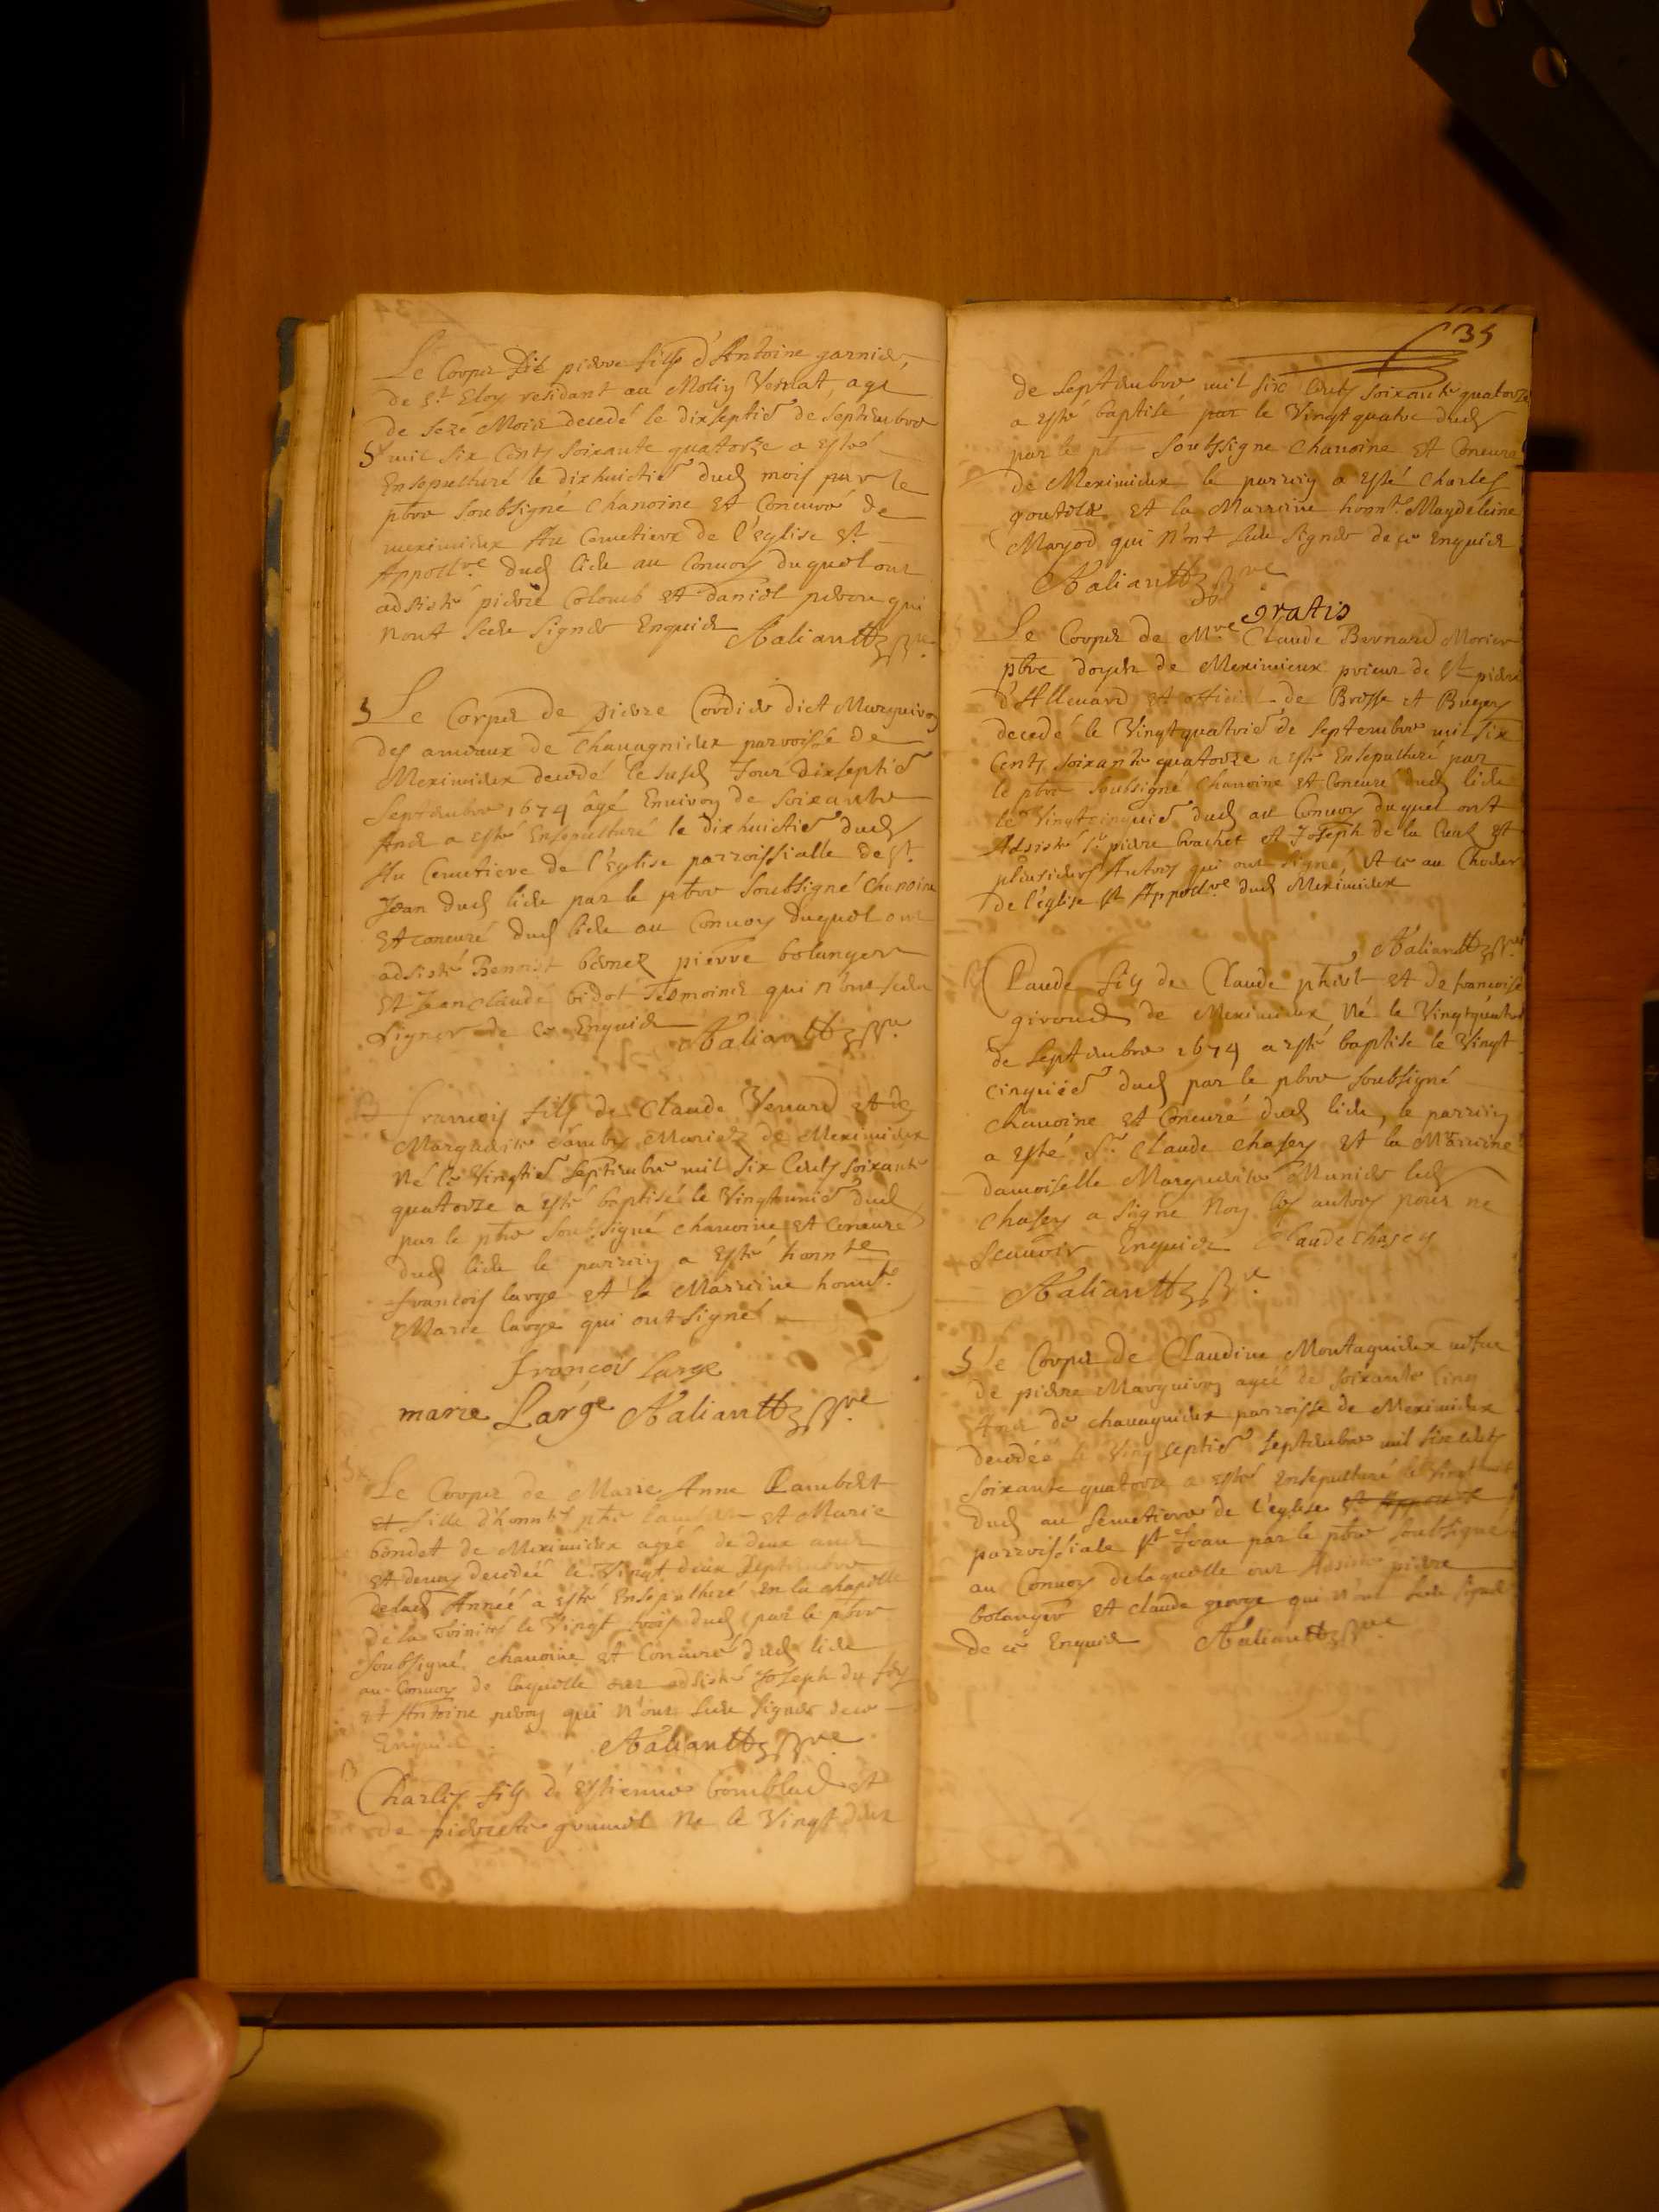 Le Corps de pierre fils d'Antoine garnier
de St Eloy residant au Molin Vernat, agé
de seze Mois decedé le dixseptie de septembre
S mil six Cents soixante quatorze a esté
Ensepulturé le dixhuictie dud mois par le
pbre soubsigné chanoine et Concuré de
meximieux Au Cemetiere de l'église St
Appollre dud lieu au Convoy duquel ont
adsisté pierre Colomb et daniel peron qui
n'ont sceu signer Enquis Aaliantt pbre
S Le Corps de pierre Cordier dict Marguiron
des ameaux de Chavagnieux parroisse de
Meximieux decedé le susd Jour dixseptie
Septembre 1674 âgé Environ de soixante
Ans a esté Ensepulturé le dixhuictie dud
Au Cemetiere de l'église parroissialle de St
Jean dud lieu par le pbre soubsigné chanoine
et concuré dud lieu au Convoy duquel ont
adsisté Benoist pierre bolanger
et Jean Claude bidot Tesmoins qui n'ont sceu
signer de ce Enquis Aaliantt pbre
B francois fils de Claude Venard et de
Marguerite Mariez de Meximieux
Né le Vingtie septembre mil six Cents soixante
quatorze a esté baptisé le Vingtunie dud
par le pbre soubsigné chanoine et Concuré
dud lieu le parrin a esté honnte
francois large et la Marrine honnte
Marie large qui ont signé
francois large
marie Large Aaliantt pbre
S Le Corps de Marie Anne Lambert
et fille d'honnte et Marie
bondet de Meximieux agéé de deux ans
et demy decedéé le Vingt deux septembre
delad Annéé a esté Ensepulturé En la chapelle
de la Trinité le Vingt trois dud par le pbre
soubsigné chanoine et Concuré dud lieu
au Convoy de laquelle ont adsisté Joseph du
et Antoine peron qui n'ont sceu signer de ce
Enquis Aaliantt pbre
B Charles fils d'Estienne bomblad et
de pierrette grumel Né le Vingt deux
35
de septembre mil six Cents soixante quatorze
a esté baptisé par le Vingt quatre dud
par le pbre soubssigné chanoine et Concuré
de Meximieux le parrin a esté Charles
goutelx et la Marrine honnte Magdeleine
Mayod qui n'ont sceu signer de ce Enquis
Aaliantt pbre
gratis
Le Corps de Mre Claude Bernard Morier
pbre doyen de Meximieux prieur de St pierre
d'Allevard et official de Bresse et Bugey
decedé le Vingt quatrie de septembre mil six
Cents soixante quatorze a esté Ensepulturé par
le pbre soubsigné chanoine et Concuré dud lieu
le Vingtcinquie dud au Convoy duquel ont
Adsisté Sr pierre brachet et Joseph de la Cueilz et
plusieurs Autres qui ont signé et ce au Choeur
de l'église St Appollre dud Meximieux
Aaliantt pbre
B Claude fils de Claude phivet et de francoise
giroud de Meximieux Né le Vingtquatre
de septembre 1674 a esté baptisé le Vingt
cinquie dud par le pbre soubsigné
chanoine et Concuré dud lieu, le parrin
a esté Sr Claude chasey et la Marrine
damoiselle Marguerite Munier led
Chasey a signé Non les autres pour ne
scavoir Enquis Claude chasey
Aaliantt pbre
S Le Corps de Claudine Montagnieux vefue
de pierre Marguiron agéé de soixante Cinq
Ans de chavagnieux parroisse de Meximieux
decedéé le Vingseptie septembre mil six cents
soixante quatorze a esté ensepulturé le Vingt huit
dud au semetiere de l'église St Appollre
parroissiale St Jean par le pbre soubsigné
au Convoy delaquelle ont Adsisté pierre
bolanger et Claude george qui n'ont sceu signer
de ce Enquis Aaliantt pbre